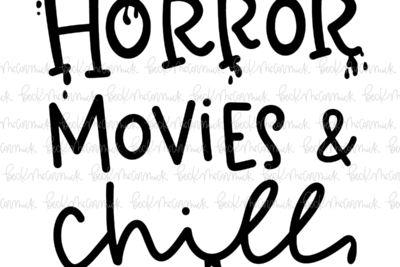 HORROR
MOVIES &
chill